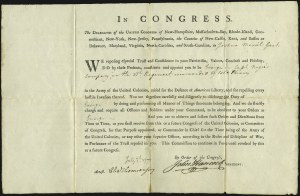 In CONGRESS.
The DELEGATES of the UNITED COLONIES of New-Hampshire, Massachusetts-Bay, Rhode-Island, Connecticut, New-York, New-Jersey, Pennsylvania, the Counties of New-Castle, Kent, and Sussex on Delaware, Maryland, Virginia, North-Carolina, and South-Carolina, to
WE reposing especial Trust and Confidence in your Patriotism, Valour, Conduct and Fidelity, DO by these Presents, constitute and appoint you to be
Company in the
in the Army of the United Colonies, raised for the Defence of American Liberty, and for repelling every hostile Invasion thereof. You are therefore carefully and diligently to discharge the Duty of
by doing and performing all Manner of Things thereunto belonging. And we do strictly charge and require all Officers and Soldiers under your Command, to be obedient to your Orders as
And you are to observe and follow such Orders and Directions from Time to Time, as you shall receive from this or a future Congress of the United Colonies, or Committee of Congress, for that Purpose appointed, or Commander in Chief for the Time being of the Army of the United Colonies, or any other your superior Officer, according to the Rules and Discipline of War, in Pursuance of the Trust reposed in you. This Commission to continue in Force until revoked by this or a future Congress.
By Order of the Congress,
John Hancock PRESIDENT.
Attest. Cha Thomson